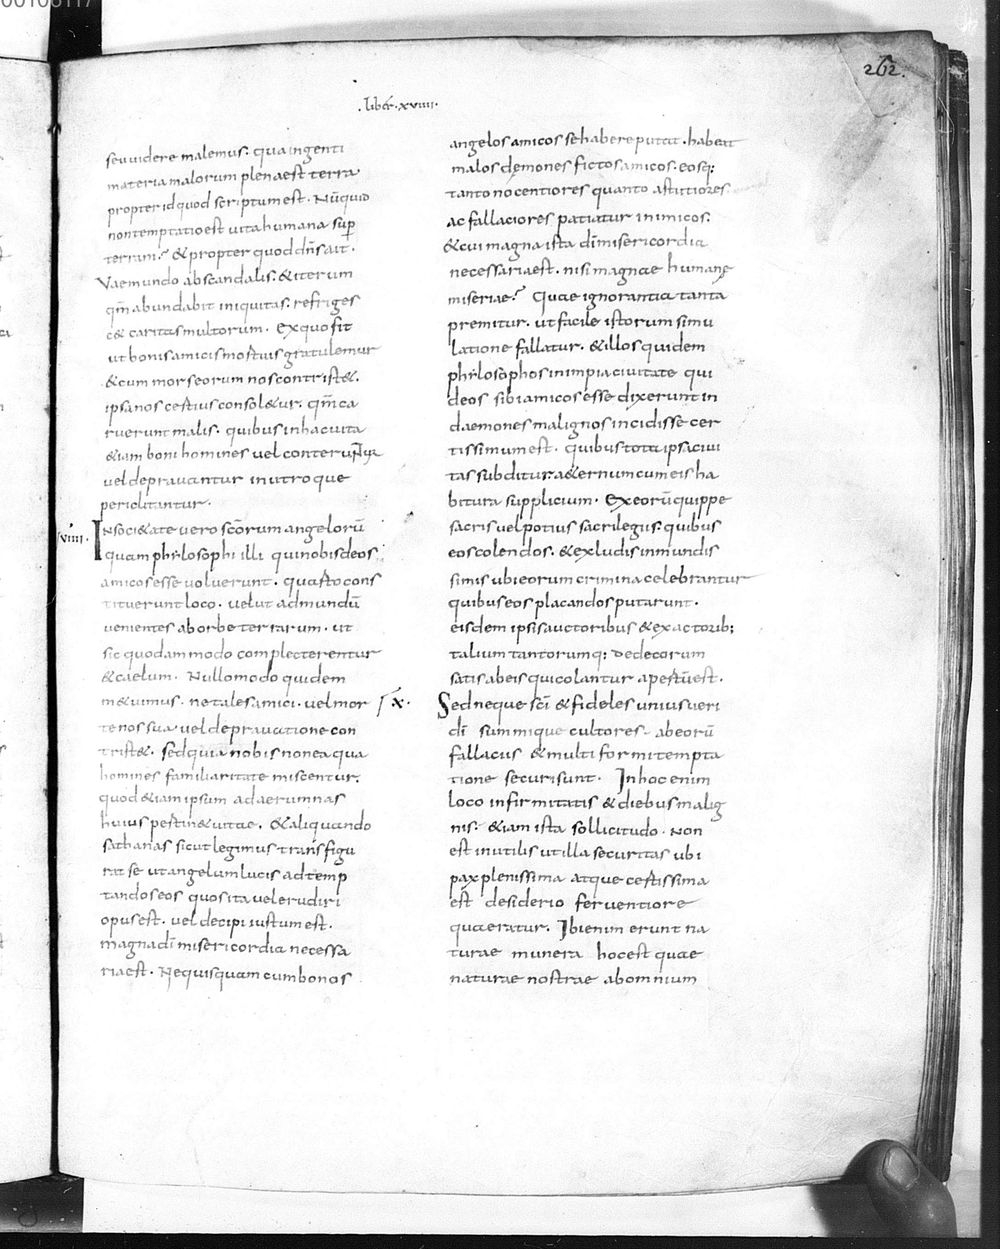 00106117
262.
.liber.xviiii.
seu uidere malemus. qua ingenti
materia malorum plena est terra
propter id quod scriptum est. Nūquid
non temptatio est uita humana sup
terram? & propter quod dn̄s ait.
Vae mundo ab scandalis. & iterum
qm̄ abundabit iniquitas. refriges
c& caritas multorum. Ex quo fit
ut bonis amicis mortuis gratulemur
& cum mors eorum nos contrist&.
ipsa nos certius consol&ur. qm̄ ca
ruerunt malis. quibus in hac uita
&iam boni homines uel conterunt̄
uel deprauantur in utroque
periclitantur.
viiii. In soci&ate uero sc̄orum angelorū
quam philosophi illi qui nobis deos
amicos esse uoluerunt. quarto cons
tituerunt loco. uelut ad mundū
uenientes ab orbe terrarum. ut
sic quodam modo complecterentur
& caelum. Nullo modo quidem
m&uimus. ne tales amici. uel mor
te nos sua uel deprauatione con
trist&. sed quia nobis non ea qua
homines familiaritate miscentur.
quod &iam ipsum ad aerumnas
huius pertin& uitae. & aliquando
sathanas sicut legimus transfigu
rat se ut angelum lucis ad temp
tandos eos quos ita uel erudiri
opus est. uel decipi iustum est.
magna dī misericordia necessa
ria est. Ne quisquam cum bonos
angelos amicos se habere putat. habeat
malos demones fictos amicos. eosq;
tanto nocentiores quanto astutiores
ac fallaciores patiatur inimicos.
& cui magna ista dī misericordia
necessaria est. nisi magnae humanę
miseriae? Quae ignorantia tanta
premitur. ut facile istorum simu
latione fallatur. & illos quidem
philosophos in impia ciuitate qui
deos sibi amicos esse dixerunt in
daemones malignos incidisse cer
tissimum est. quibus tota ipsa ciui
tas subditur. a&ernum cum eis ha
bitura supplicium. Ex eorū quippe
sacris uel potius sacrilegiis. quibus
eos colendos. & ex ludis inmundis
simis ubi eorum crimina celebrantur
quibus eos placandos putarunt.
eisdem ipsis auctoribus & exactorib;
talium tantorumq; dedecorum
satis ab eis qui colantur apertū est.
x. Sed neque sc̄i & fideles unius ueri
dī summique cultores. ab eorū
fallaciis & multiformi tempta
tione securi sunt. In hoc enim
loco infirmitatis & diebus malig
nis. &iam ista sollicitudo. Non
est inutilis ut illa securitas ubi
pax plenissima atque certissima
est desiderio feruentiore
quaeratur. Ibi enim erunt na
turae munera hoc est quae
naturae nostrae ab omnium